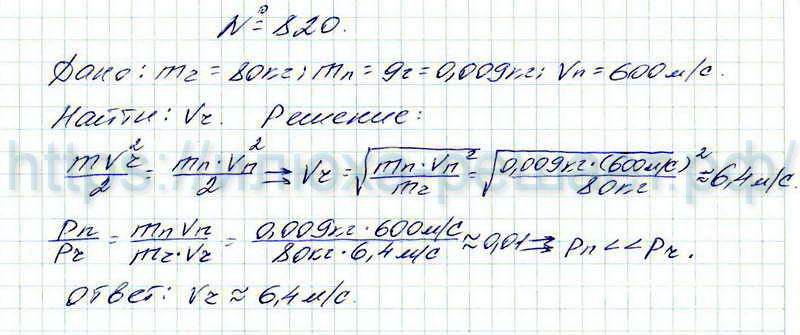 № 820.
Дано: mч = 80кг; mп = 9г = 0,009кг; Vп = 600м/с.
Найти: Vч. Решение:
mVч²/2 = mп·Vп²/2 ⇒ Vч = √(mп·Vп²/mч) = √(0,009кг·(600м/с)²/80кг) ≈ 6,4м/с.
Pп/Pч = mпVп/mч·Vч = 0,009кг·600м/с/80кг·6,4м/с ≈ 0,01 ⇒ Pп << Pч.
Ответ: Vч ≈ 6,4м/с.